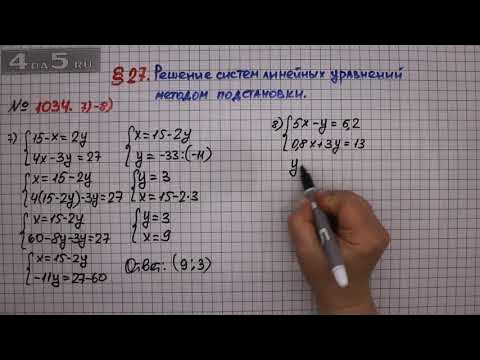 4 DA 5.RU
§ 27. Решение систем линейных уравнений
методом подстановки.
№ 1034. 7)-8)
7) {15-x=2y
4x-3y=27
{x=15-2y
4(15-2y)-3y=27
{x=15-2y
60-8y-3y=27
{x=15-2y
-11y=27-60
{x=15-2y
y=-33:(-11)
{y=3
x=15-2·3
{y=3
x=9
Ответ: (9;3)
8) {5x-y=6,2
0,8x+3y=13
y